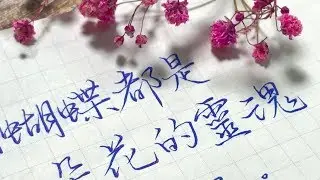 蝴蝶都是
花的靈魂